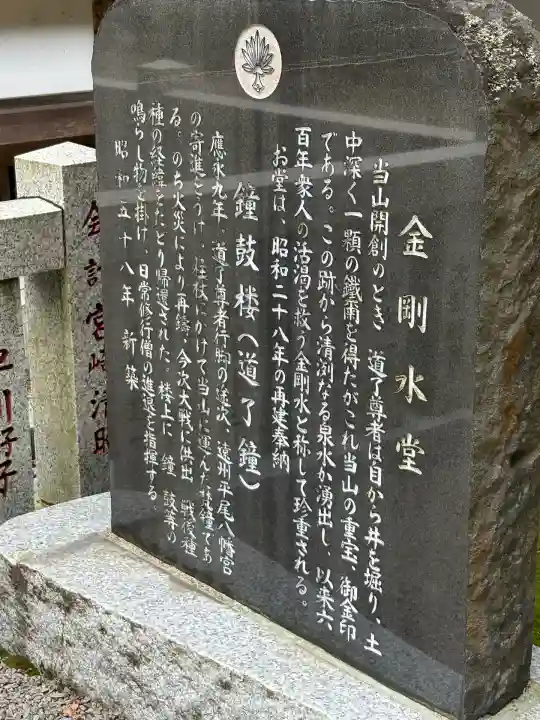 金剛水堂
当山開創のとき 道了尊者は自から井を掘り、土
中深く一顆の鐵印を得たがこれ当山の重宝、御金印
である。この跡から清冽なる泉水が湧出し、以来六
百年衆人の活渇を救う金剛水と称して珍重される。
お堂は、昭和二十八年の再建奉納
鐘鼓楼(道了鐘)
應永九年、道了尊者行脚の途次、遠州平尾八幡宮
の寄進をうけ、柱杖にかけて当山に運んだ梵鐘であ
る。のち火災により再鋳、今次大戦に供出 戦後種
種の経緯をたどり帰還された。楼上に 鐘 鼓等の
鳴らし物を掛け 日常修行僧の進退を指揮する。
昭和五十八年 新築
会計 宮崎清